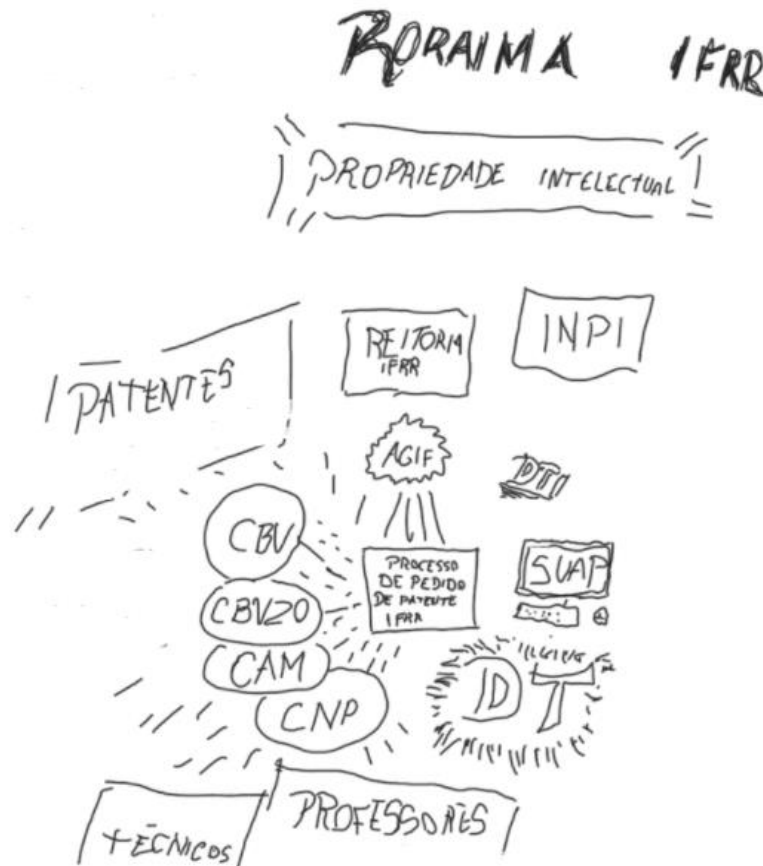 RORAIMA IFRR
PROPRIEDADE INTELECTUAL
PATENTES
REITORIA
IFRR
INPI
AGIF
DTI
CBV
CBVZO
CAM
CNP
PROCESSO
DE PEDIDO
DE PATENTE
IFRR
SUAP
ID T
TÉCNICOS
PROFESSORES